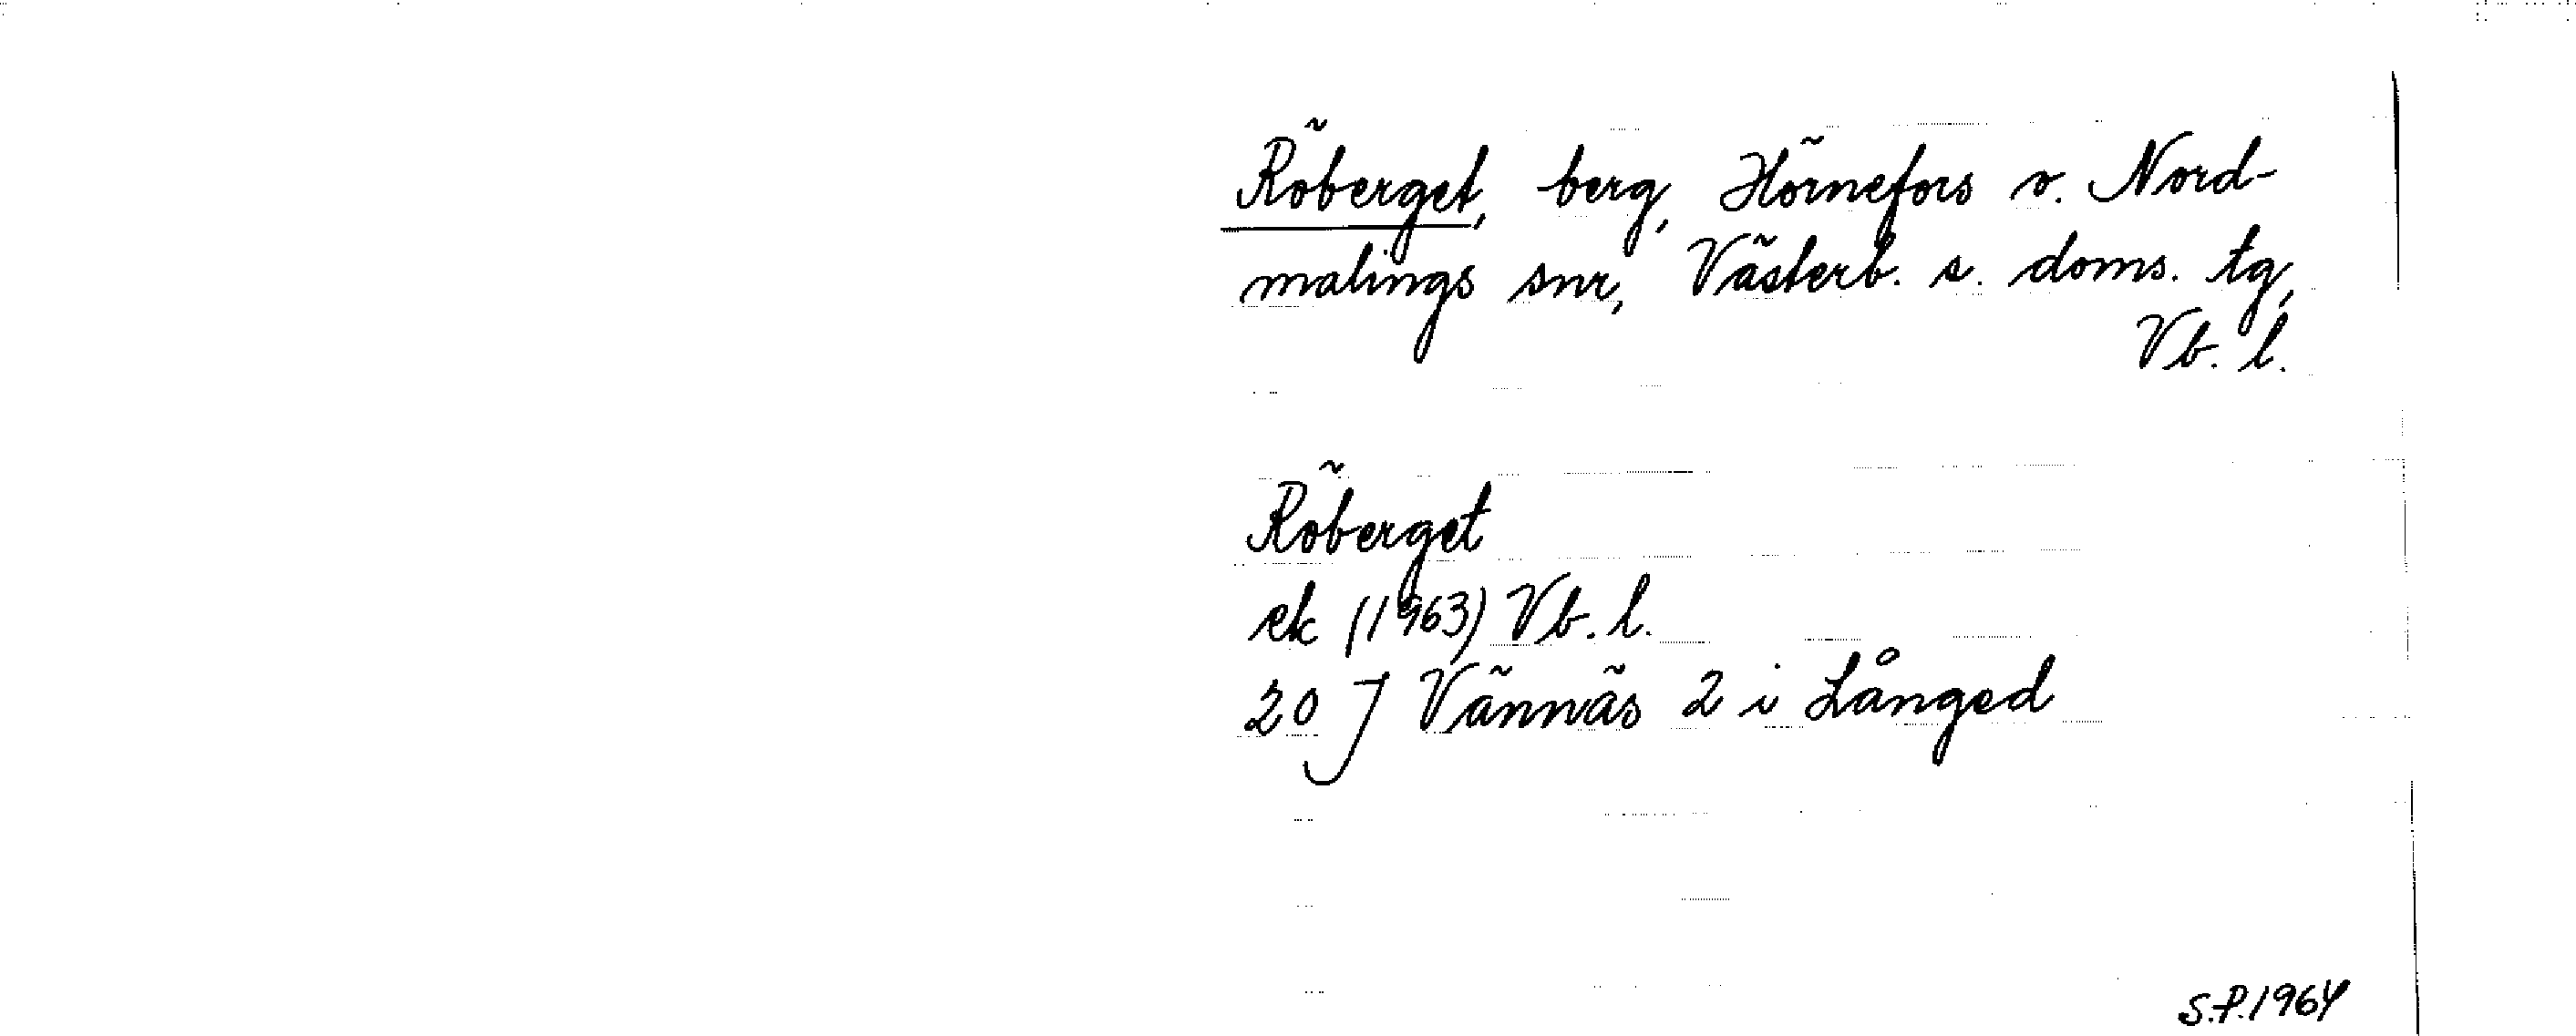 Röberget, berg, Hörnefors o. Nord-
malings snr, Västerb. s. doms. tg,
Vb. l.
Röberget
ek (1963) Vb. l.
20 J Vännäs 2 i Långed
S.P. 1964